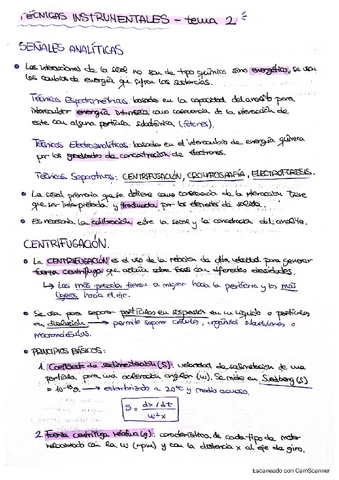 TÉCNICAS INSTRUMENTALES - tema 2
SEÑALES ANALÍTICAS
• Las interacciones de la señal no son de tipo químico sino energético, se usan
los cambios de energía que sufren las sustancias.
Técnicas Espectrométricas: basadas en la capacidad del analito para
intercambiar energía lumínica como consecuencia de la interacción de
este con alguna partícula subatómica (fotones).
Técnicas Electroanalíticas: basadas en el intercambio de energía química
por los gradientes de concentración de electrones.
Técnicas Separativas: CENTRIFUGACIÓN, CROMATOGRAFÍA, ELECTROFORESIS.
• La señal primaria que se obtiene como consecuencia de la interacción tiene
que ser interpretada y traducida por los elementos de salida.
• Es necesaria la calibración entre la señal y la concentración del analito.
CENTRIFUGACIÓN.
• La CENTRIFUGACIÓN es el uso de la rotación de alta velocidad para generar
fuerza centrífuga que actúa sobre fases con diferentes densidades.
↳ Las más pesadas tienen a migrar hacia la periferia y las más
ligeras hacia el eje.
• Se usa para separar partículas en suspensión en un líquido o partículas
en disolución → permite separar células, orgánulos subcelulares o
macromoléculas.
• PRINCIPIOS BÁSICOS:
1. Coeficiente de sedimentación (S): velocidad de sedimentación de una
partícula, para una aceleración angular (w). Se mide en Svedberg (S)
= 10⁻¹³ s. → estandarizado a 20°C y medio acuoso.
S = dx/dt / w²x
2. Fuerza centrífuga relativa (g): característica de cada tipo de rotor
relacionado con la w (rpm) y con la distancia x al eje de giro.
Escaneado con CamScanner